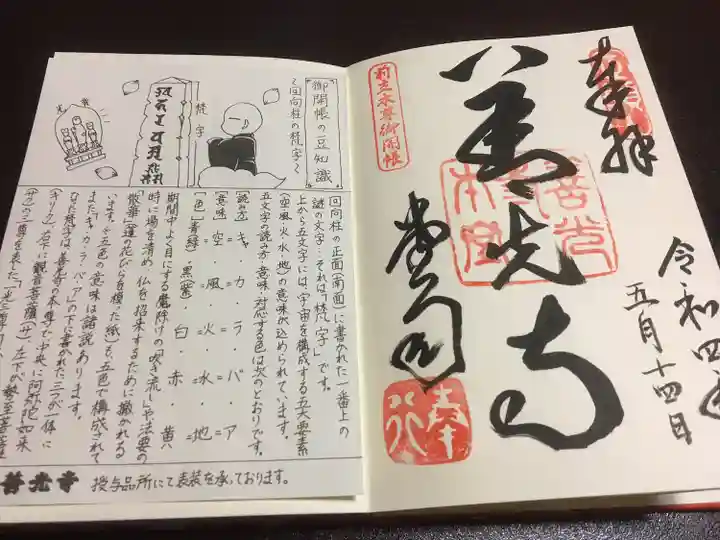 奉拝
令和四年
五月十四日
善光寺
前立本尊御開帳
御開帳の豆知識
〜回向柱の梵字〜
梵字
回向柱の正面(南面)に書かれた一番上の
謎の文字・それは「梵字」です。
上から五文字には、宇宙を構成する五大要素
(空風火水地)の意味が込められています。
五文字の読み方・意味・対応する色は次のとおりです。
【読み方】キャ・カ・ラ・バ・ア
【意味】空=風=火=水=地
【色】青(緑)・黒(紫)・白・赤・黄
期間中よく目にする魔除けの「吹き流し」や法要の
時に場を清め仏を招来するために撒かれる
「散華」(蓮の花びらを模した紙)も、五色で構成されて
います。※五色の意味は諸説あります。
また「キャ・カ・ラ・バ・ア」の下に書かれた三つが一体に
なった梵字は、善光寺の本尊で中央に阿弥陀如来
(キリーク)、右下に観音菩薩(サ)、左下が勢至菩薩
(サク)の三尊を表した「一光
善光寺 授与品所にて表装を承っております。